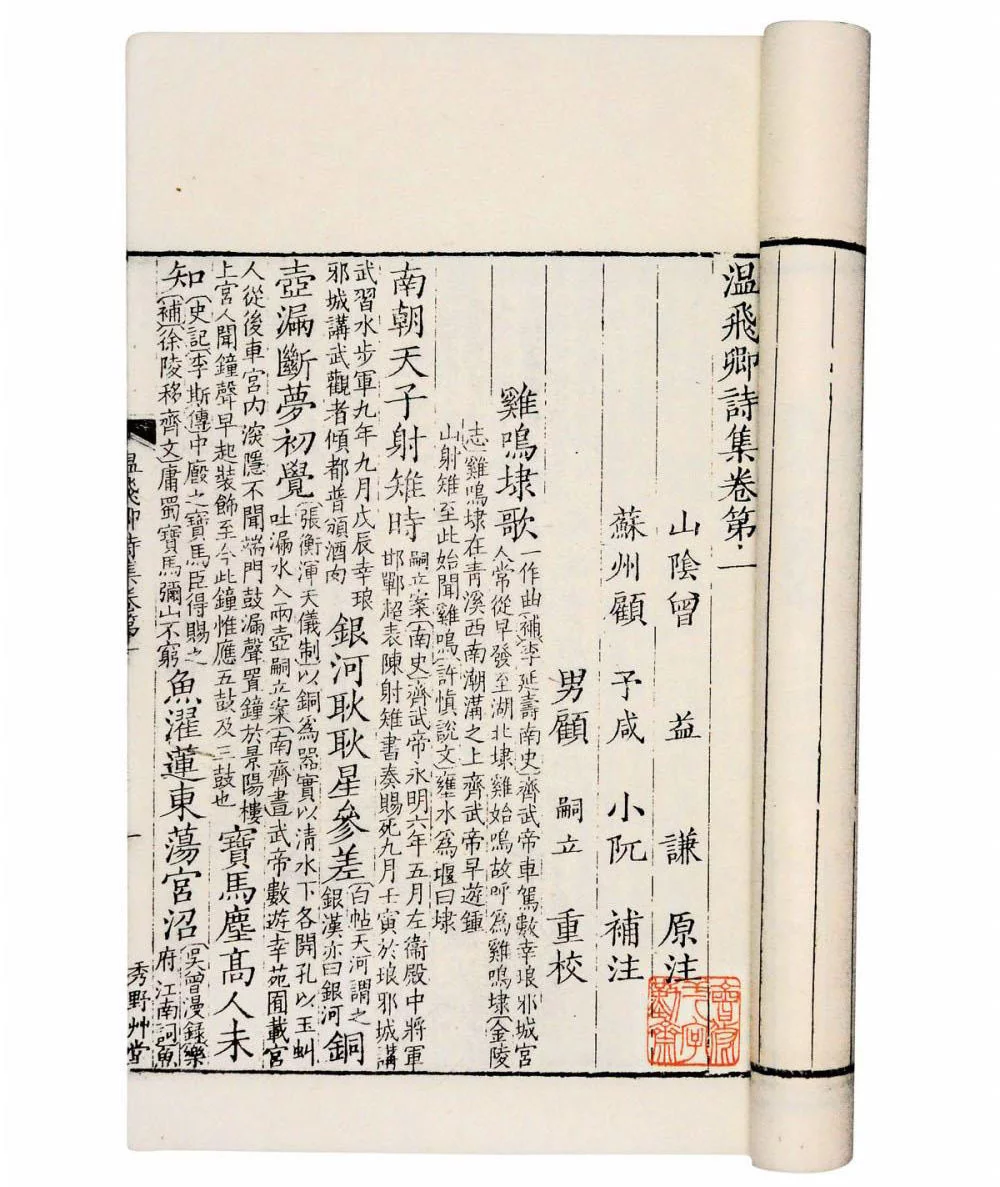 温飛卿詩集卷第一
山陰曾 益 謙 原注
蘇州顧 予咸 小阮 補注
男顧 嗣立 重校
雞鳴埭歌
一作曲補李延壽南史齊武帝車駕數幸琅邪城宮
人常從早發至湖北埭雞始鳴故呼爲雞鳴埭金陵
志雞鳴埭在青溪西南潮溝之上齊武帝早遊鍾
山射雉至此始聞雞鳴許慎說文壅水爲堰曰埭
南朝天子射雉時
嗣立案南史齊武帝永明六年五月左衞殿中將軍
邯鄲超表陳射雉書奏賜死九月壬寅於琅邪城講
武習水步軍九年九月戊辰幸琅
邪城講武觀者傾都普頒酒肉
銀河耿耿星參差
白帖天河謂之
銀漢亦曰銀河
銅
壺漏斷夢初覺
張衡渾天儀制以銅爲器實以清水下各開孔以玉虬
吐漏水入兩壺嗣立案南齊書武帝數遊幸苑囿載宮
人從後車宮内深隱不聞端門鼓漏聲置鐘於景陽樓
上宮人聞鐘聲早起裝飾至今此鐘惟應五鼓及三鼓也
寶馬塵高人未
知
史記李斯傳中廄之寶馬臣得賜之
補徐陵移齊文庸蜀寶馬彌山不窮
魚濯蓮東蕩宮沼
吳曾漫錄樂
府江南詞魚
温飛卿詩集卷第一
一
秀野艸堂